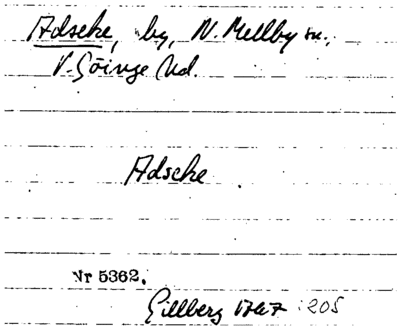 Adseke, by, N. Mellby sn.,
V. Göinge hd.
Adseke
Nr 5362.
Gillberg 1767 : 205